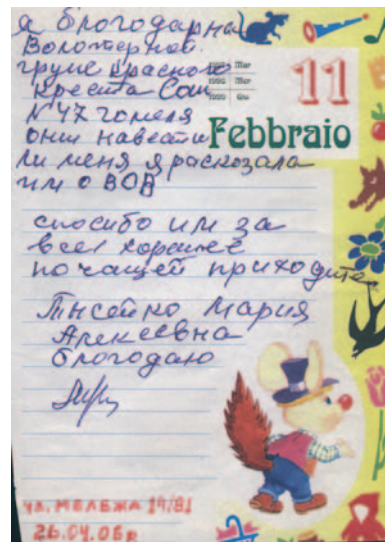 я блогодарна
Волотерной
групе красного
креста Сош
N 47 гомеля
они навести
ли меня я расказала
им о ВОВ
11
Febbraio
спосибо им за
всеи хорошее
почащей приходите
Тисейко Мария
Алексеевна
блогодаю
ул. МЕЛЕЖА 19/81
26.04.06г